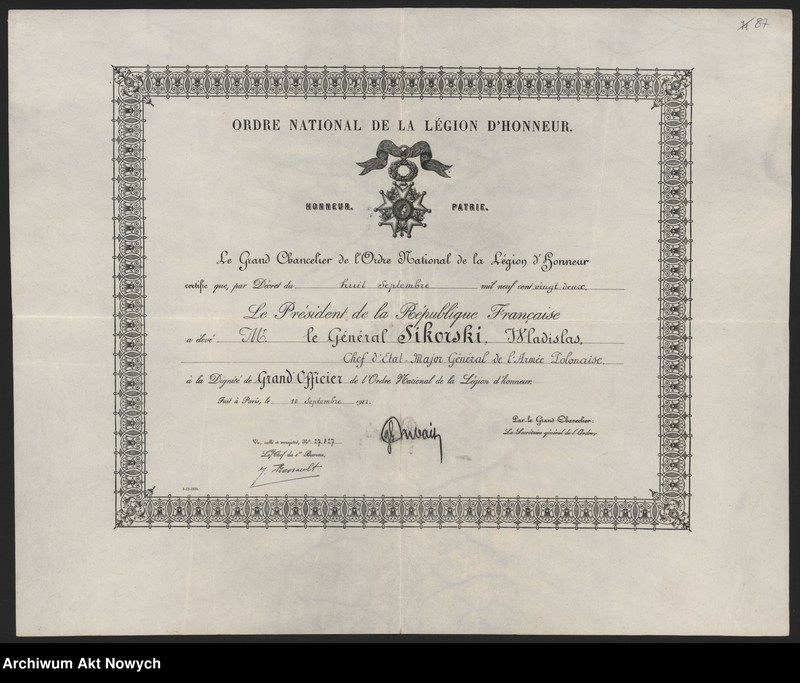 87
ORDRE NATIONAL DE LA LÉGION D'HONNEUR.
HONNEUR. PATRIE.
Le Grand Chancelier de l'Ordre National de la Légion d'Honneur
certifie que, par Décret du huit Septembre mil neuf cent vingt deux,
Le Président de la République Française
a élevé Mr. le Général Sikorski, Wladislas,
Chef d'Etat-Major Général de l'Armée Polonaise
à la Dignité de Grand Officier de l'Ordre National de la Légion d'honneur.
Fait à Paris, le 18 Septembre 1922.
Par le Grand Chancelier:
Le Secrétaire général de l'Ordre,
Vu, scellé et enregistré, No 27.827
Le Chef du 1er Bureau,
Archiwum Akt Nowych